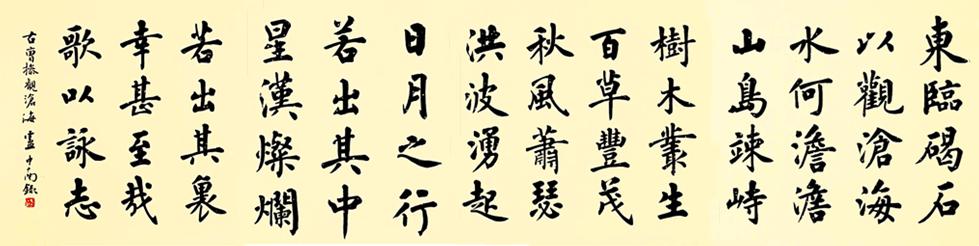 東臨碣石
以觀滄海
水何澹澹
山島竦峙
樹木叢生
百草豐茂
秋風蕭瑟
洪波湧起
日月之行
若出其中
星漢燦爛
若出其裏
幸甚至哉
歌以詠志
曹操觀滄海 盧中南錄